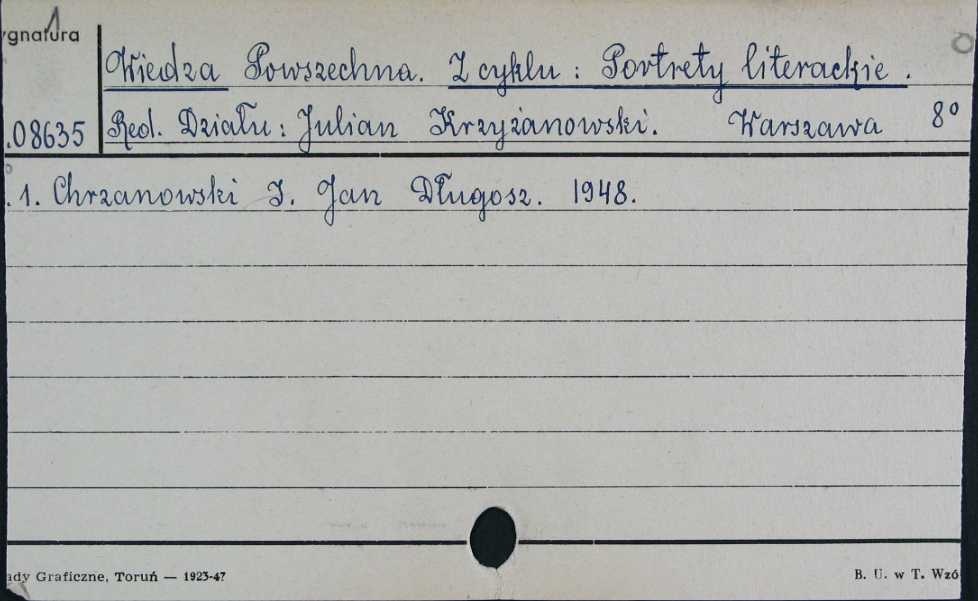 ygnatura
Wiedza Powszechna. Z cyklu: Portrety literackie.
.08635 Red. Działu: Julian Krzyżanowski. Warszawa 8°
. 1. Chrzanowski I. Jan Długosz. 1948.
ady Graficzne, Toruń — 1923-47 B. U. w T. Wzó